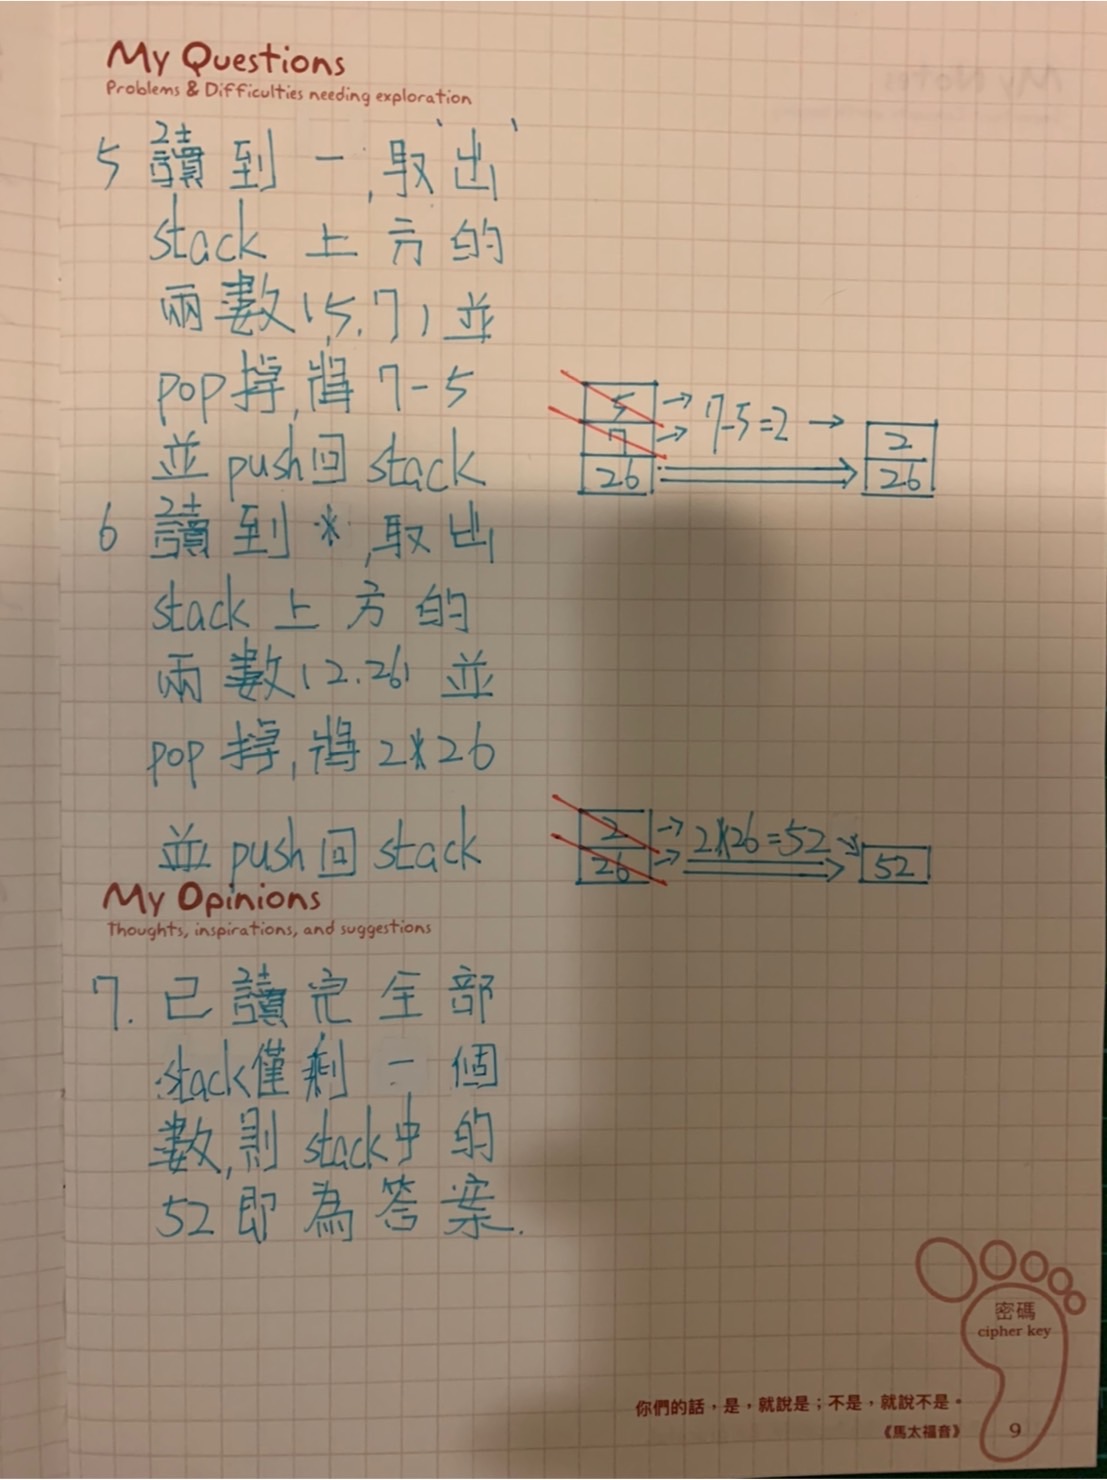 My Questions
Problems & Difficulties needing exploration
5 讀到 -,取出
stack 上方的
兩數(5,7)並
pop掉,將 7-5
並 push回 stack
5 → 7-5=2 →
7 →
26
2
26
6 讀到 *,取出
stack 上方的
兩數(2.26)並
pop 掉,將 2*26
並 push回 stack
2 → 2*26=52 ↘
26 →
52
My Opinions
Thoughts, inspirations, and suggestions
7. 已讀完全部
stack僅剩一個
數,則 stack中的
52 即為答案.
密碼
cipher key
你們的話,是,就說是;不是,就說不是。
《馬太福音》
9